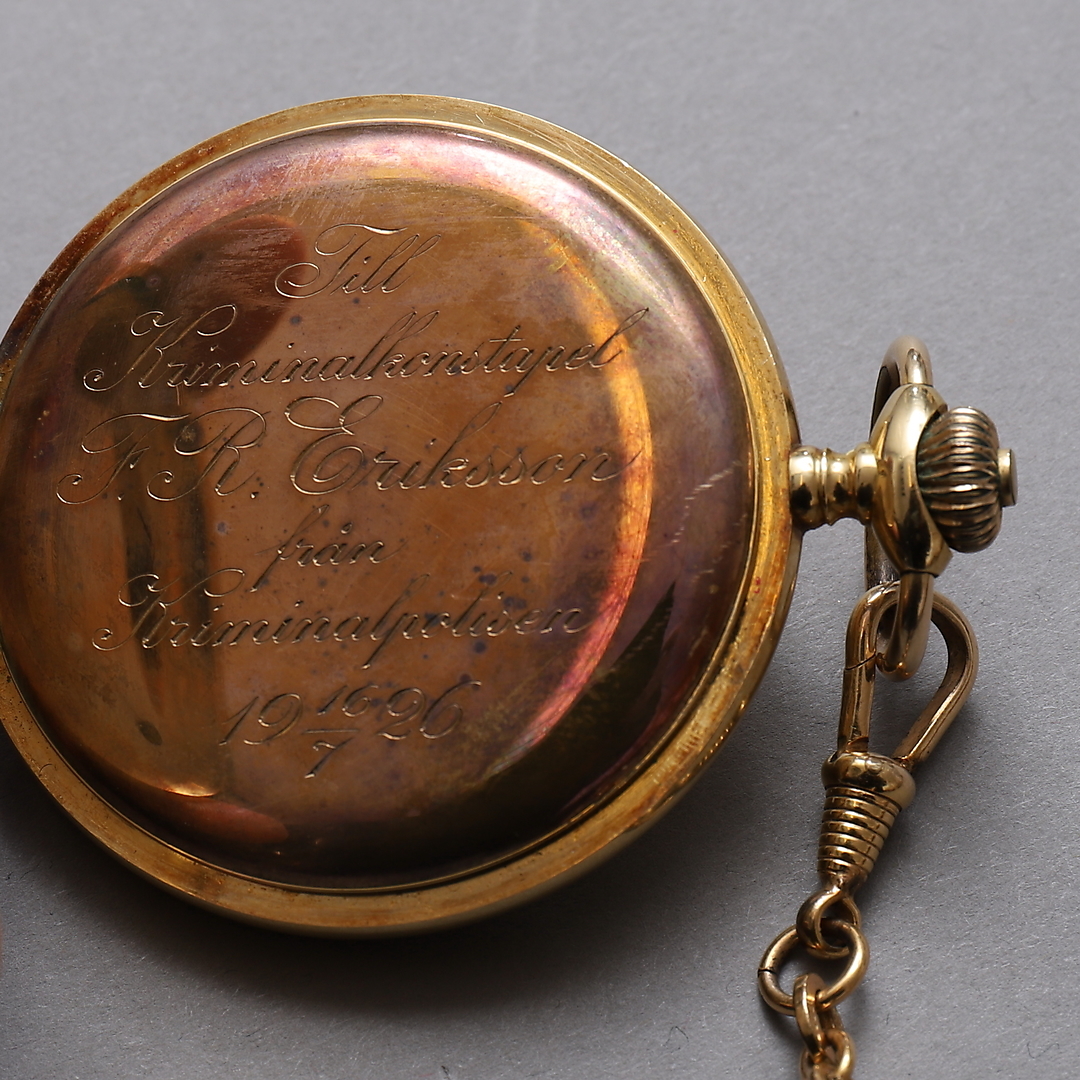 Till
Kriminalkonstapel
F. R. Eriksson
från
Kriminalpolisen
19 16/7 26